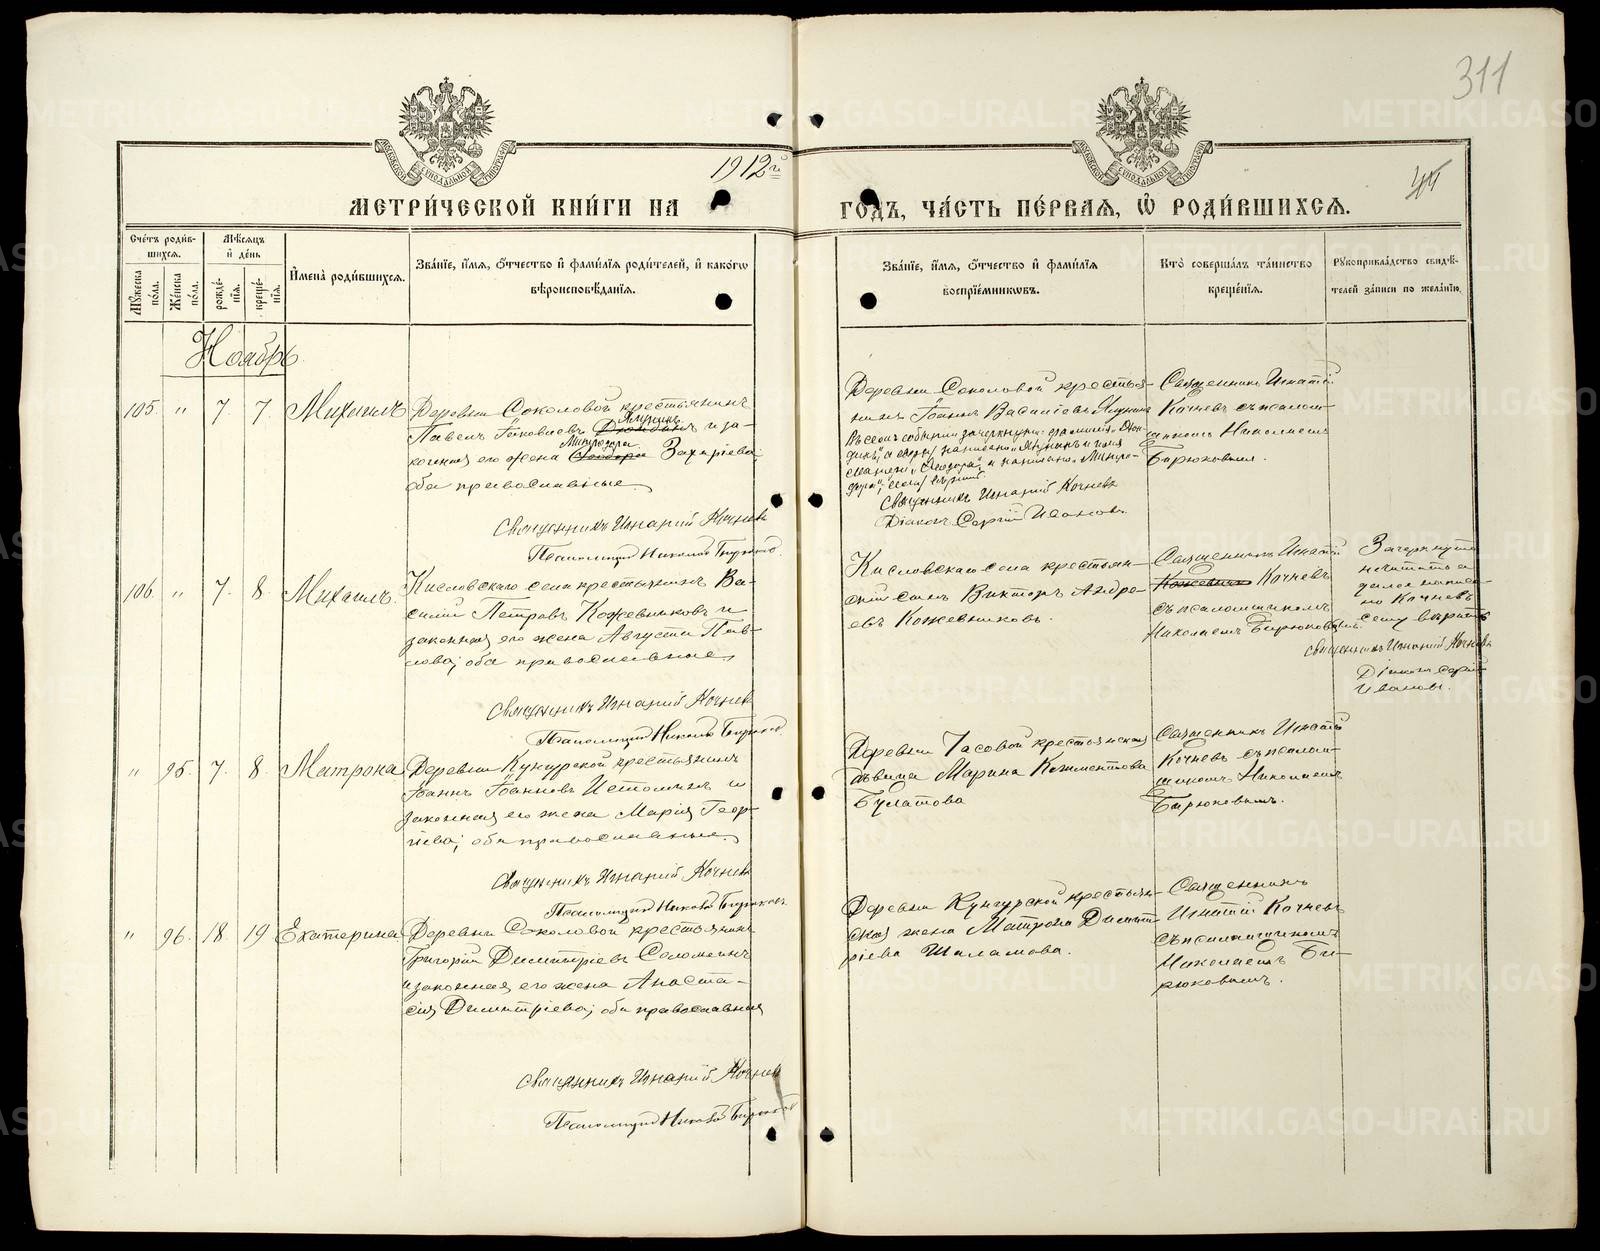 311
45
1912 г.
МЕТРИЧЕСКОЙ КНИГИ НА
ГОДЪ, ЧАСТЬ ПЕРВАЯ, Ѡ РОДИВШИХСЯ.
Счетъ родившихся.
Мужеска пола.
Женска пола.
Мѣсяцъ и день
рожденія.
крещенія.
Имена родившихся.
Званіе, имя, отчество и фамилія родителей, и какогѡ
вѣроисповѣданія.
Званіе, имя, отчество и фамилія
воспріемниковъ.
Кто совершалъ таинство
крещенія.
Рукоприкладство свидѣ-
телей записи по желанію.
Ноябрь
105. " 7. 7. Михаилъ
Деревни Соколовой крестьянинъ
Якунинъ
Павелъ Іаковлевъ и за-
Митродора
конная его жена Ѳеодора Захаріева;
оба православные.
Священникъ Игнатій Кочневъ
Псаломщикъ Николай Бирюковъ
Деревни Соколовой крестья-
нинъ Іоаннъ Васильевъ Якунинъ
Въ семъ событіи зачеркнуты: фамилія
а сверху написано „Якунинъ" и имя
матери „Ѳеодора" и написано „Митро-
дора", сему вѣрить
Священникъ Игнатій Кочневъ
Діаконъ Сергій Ивановъ.
Священникъ Игнатій
Кочневъ съ псалом-
щикомъ Николаемъ
Бирюковымъ.
106. " 7. 8. Михаилъ.
Кисловскаго села крестьянинъ Ва-
силій Петровъ Кожевниковъ и
законная его жена Августа Пав-
лова; оба православные.
Священникъ Игнатій Кочневъ
Псаломщикъ Николай Бирюковъ.
Кисловскаго села крестьян-
скій сынъ Викторъ Андре-
евъ Кожевниковъ.
Священникъ Игнатій
Кочневъ
съ псаломщикомъ
Николаемъ Бирюковымъ.
Зачеркнуто
но Кочневъ
сему вѣрить
Священникъ Игнатій Кочневъ
Діаконъ Сергій
Ивановъ.
" 95. 7. 8. Матрона
Деревни Кунгурской крестьянинъ
Іоаннъ Іоанновъ Истоминъ и
законная его жена Марія Геор-
гіева; оба православные.
Священникъ Игнатій Кочневъ
Псаломщикъ Николай Бирюковъ
Деревни Часовой крестьянская
дѣвица Марина Климентова
Булатова
Священникъ Игнатій
Кочневъ съ псалом-
щикомъ Николаемъ
Бирюковымъ.
" 96. 18. 19 Екатерина
Деревни Соколовой крестьянинъ
Григорій Димитріевъ Соломеинъ
и законная его жена Анаста-
сія Димитріева; оба православныя
Священникъ Игнатій Кочневъ
Псаломщикъ Николай Бирюковъ
Деревни Кунгурской крестьян-
ская жена Матрона Димит-
ріева Шаламова.
Священникъ
Игнатій Кочневъ
съ псаломщикомъ
Николаемъ Би-
рюковымъ.